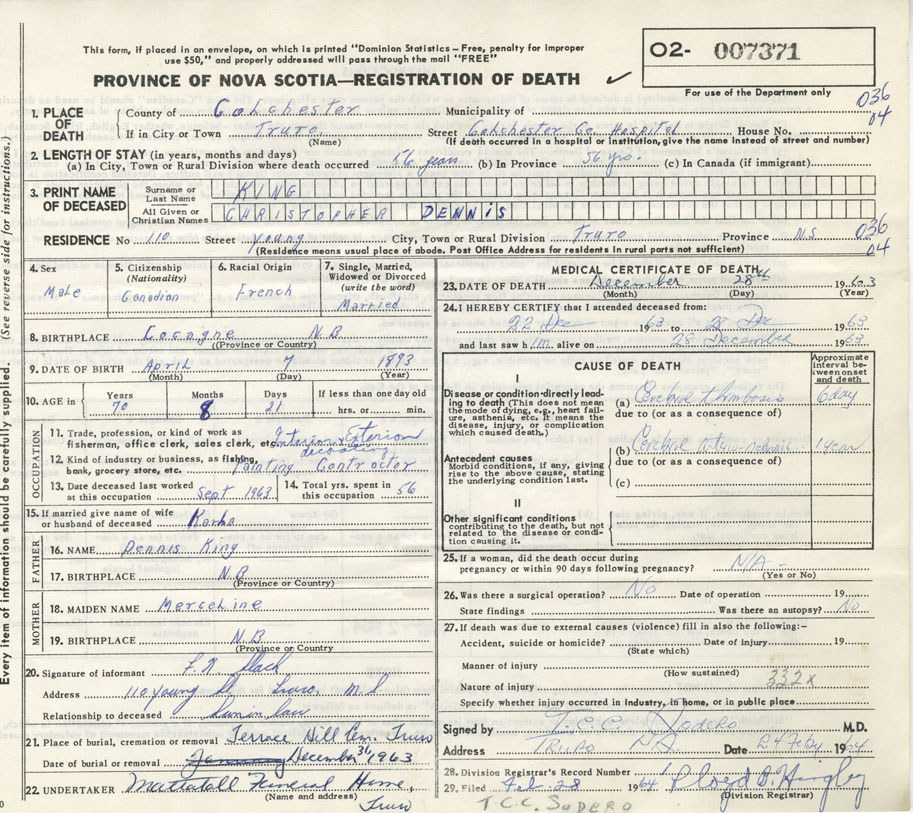 This form, if placed in an envelope, on which is printed "Dominion Statistics – Free, penalty for improper
use $50," and properly addressed will pass through the mail "FREE"
PROVINCE OF NOVA SCOTIA—REGISTRATION OF DEATH ✓
O2- 007371
For use of the Department only
036
04
1. PLACE OF DEATH County of Colchester Municipality of
If in City or Town Truro. Street Colchester Co. Hospital House No.
(Name) (If death occurred in a hospital or institution, give the name instead of street and number)
2. LENGTH OF STAY (in years, months and days)
(a) In City, Town or Rural Division where death occurred 56 years (b) In Province 56 yrs. (c) In Canada (if immigrant)
3. PRINT NAME OF DECEASED Surname or Last Name KING
All Given or Christian Names CHRISTOPHER DENNIS
RESIDENCE No 110 Street Young City, Town or Rural Division Truro Province N.S
(Residence means usual place of abode. Post Office Address for residents in rural parts not sufficient)
036
04
4. Sex Male
5. Citizenship (Nationality) Canadian
6. Racial Origin French
7. Single, Married, Widowed or Divorced (write the word) Married
8. BIRTHPLACE Cocagne N.B
(Province or Country)
9. DATE OF BIRTH April 7 1893
(Month) (Day) (Year)
10. AGE in Years 70 Months 8 Days 21 If less than one day old hrs. or min.
OCCUPATION
11. Trade, profession, or kind of work as fisherman, office clerk, sales clerk, etc. Interior & Exterior decorating
12. Kind of industry or business, as fishing, bank, grocery store, etc. Painting Contractor
13. Date deceased last worked at this occupation Sept 1963 14. Total yrs. spent in this occupation 56
15. If married give name of wife or husband of deceased
FATHER
16. NAME Dennis King
17. BIRTHPLACE N.B
(Province or Country)
MOTHER
18. MAIDEN NAME Marceline
19. BIRTHPLACE N.B
(Province or Country)
20. Signature of informant
Address 110 Young St Truro, N.S
Relationship to deceased Son in law
21. Place of burial, cremation or removal Terrace Hill Cem. Truro
Date of burial or removal January December 31, 1963
22. UNDERTAKER Mattatall Funeral Home,
(Name and address) Truro
MEDICAL CERTIFICATE OF DEATH
23. DATE OF DEATH December 28th 1963
(Month) (Day) (Year)
24. I HEREBY CERTIFY that I attended deceased from:
22 Dec 1963 to 28 Dec 1963
and last saw him alive on 28 December 1963
CAUSE OF DEATH
Approximate interval between onset and death
I
Disease or condition directly leading to death (This does not mean the mode of dying, e.g., heart failure, asthenia, etc. It means the disease, injury, or complication which caused death.)
(a) Cerebral thrombosis 6 day
due to (or as a consequence of)
Antecedent causes
Morbid conditions, if any, giving rise to the above cause, stating the underlying condition last.
(b) Cerebral 1 year
due to (or as a consequence of)
(c)
II
Other significant conditions contributing to the death, but not related to the disease or condition causing it.
25. If a woman, did the death occur during pregnancy or within 90 days following pregnancy? N/A –
(Yes or No)
26. Was there a surgical operation? No Date of operation 19
State findings Was there an autopsy? No
27. If death was due to external causes (violence) fill in also the following:–
Accident, suicide or homicide? Date of injury 19
(State which)
Manner of injury
(How sustained)
Nature of injury 332X
Specify whether injury occurred in industry, in home, or in public place
Signed by T.C.C. Sodero M.D.
Address TRURO N.S. Date 24 Feby 1964
28. Division Registrar's Record Number 1
29. Filed Feb. 28 1964 Lloyd B. Hingley
(Division Registrar)
T.C.C. SODERO
Every item of information should be carefully supplied. (See reverse side for instructions.)